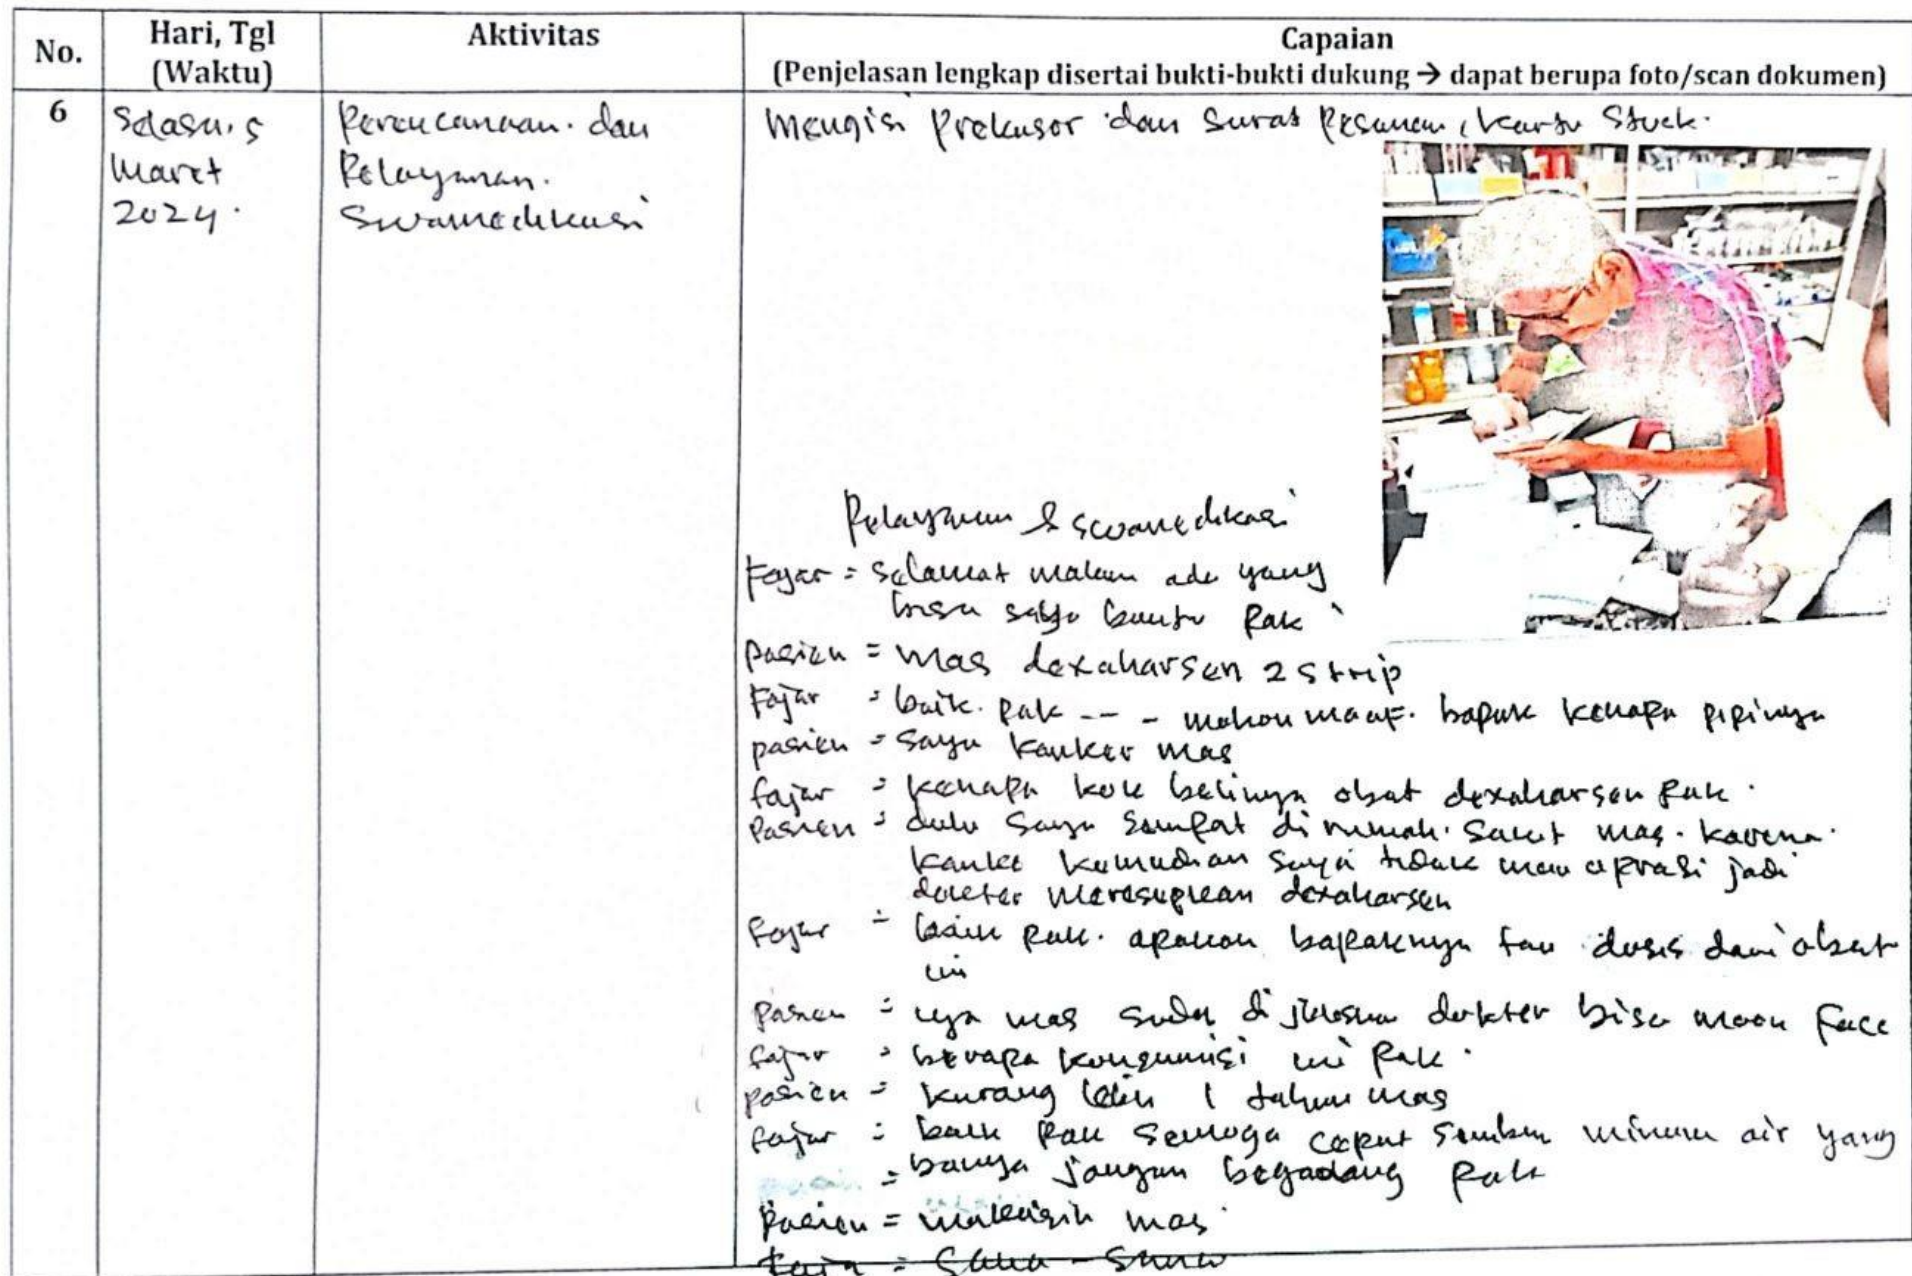 No.
Hari, Tgl
(Waktu)
Aktivitas
Capaian
(Penjelasan lengkap disertai bukti-bukti dukung → dapat berupa foto/scan dokumen)
6
Selasa, 5
Maret
2024.
Perencanaan. dan
Pelayanan.
Swamedikasi
Mengisi Prekusor dan Surat Pesanan, Kartu Stock.
Pelayanan & swamedikasi
Fajar = Selamat malam ada yang
bisa saya bantu Pak
pasien = mas dexaharsen 2 strip
Fajar = baik. Pak --- mohon maaf. bapak kenapa pipinya
pasien = Saya kanker mas
fajar = kenapa kok belinya obat dexaharsen Pak.
Pasien = dulu Saya Sempat di rumah. Sakit mas. karena.
kanker kemudian saya tidak mau oprasi jadi
dokter meresepkan dexaharsen
Fajar = baik Pak. apakah bapaknya tau dosis dari obat
ini
Pasien = iya mas sudah di jelaskan dokter bisa moon face
fajar = berapa konsumsi ini Pak.
pasien = kurang lebih 1 tahun mas
fajar = baik Pak Semoga cepat Sembuh minum air yang
= banya jangan begadang Pak
Pasien = makasih mas.
Fajar = Sama - Sama